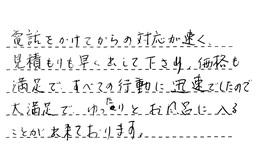 電話をかけてからの対応が速く
見積もりも早く出して下され、価格も
満足で、すべての行動に迅速でしたので
大満足で、ゆったりとお風呂に入る
ことが出来ております。